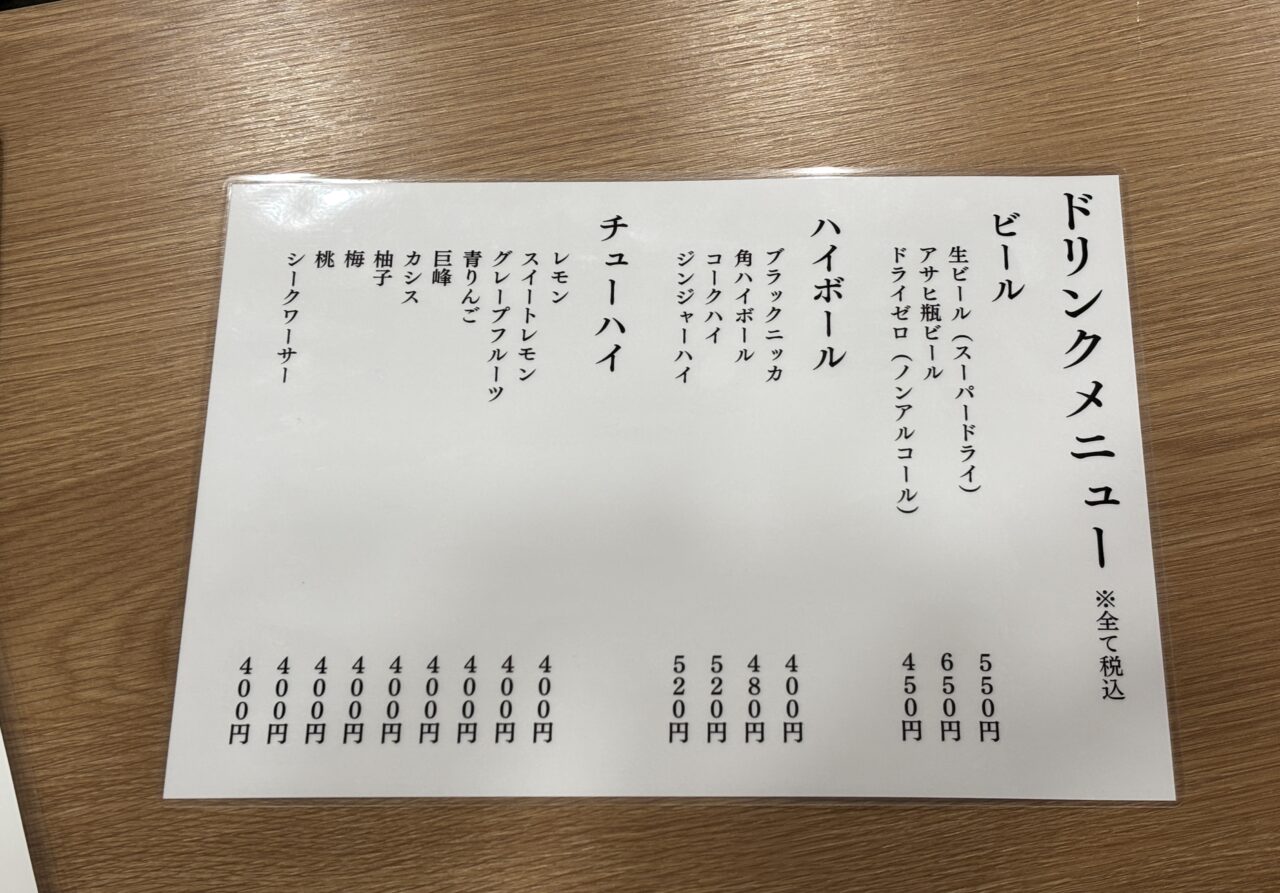 ドリンクメニュー ※全て税込
ビール
生ビール（スーパードライ） 550円
アサヒ瓶ビール 650円
ドライゼロ（ノンアルコール） 450円
ハイボール
ブラックニッカ 400円
角ハイボール 480円
コークハイ 520円
ジンジャーハイ 520円
チューハイ
レモン 400円
スイートレモン 400円
グレープフルーツ 400円
青りんご 400円
巨峰 400円
カシス 400円
柚子 400円
梅 400円
桃 400円
シークワーサー